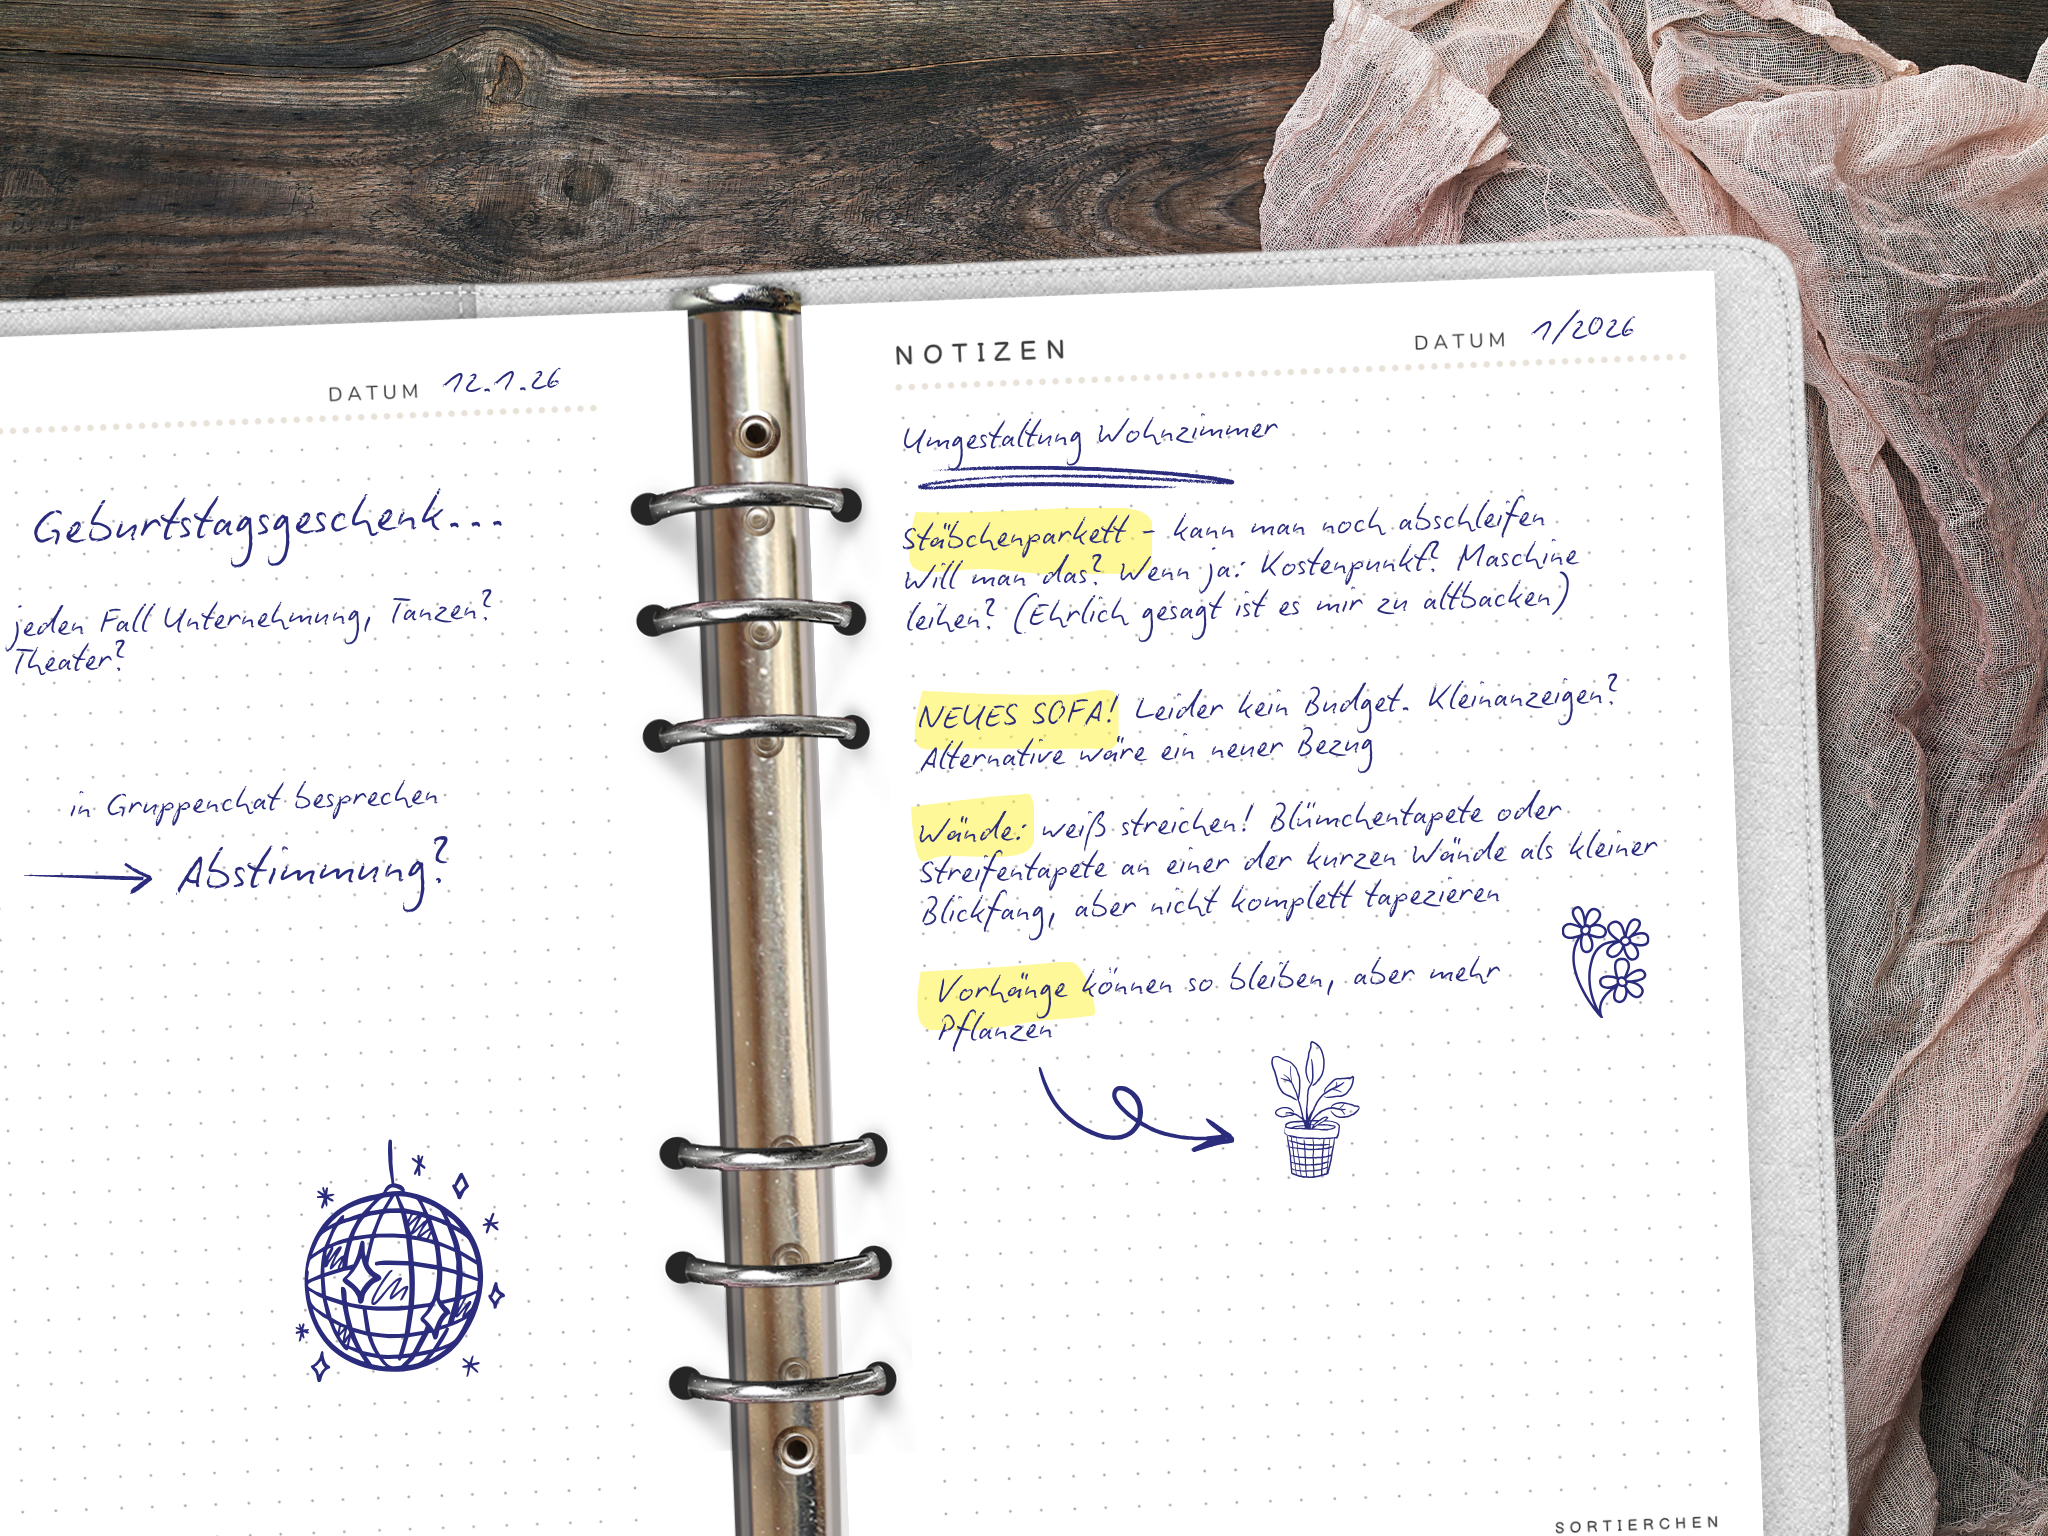 DATUM 12.1.26
Geburtstagsgeschenk...
jeden Fall Unternehmung, Tanzen?
Theater?
in Gruppenchat besprechen
Abstimmung?
NOTIZEN DATUM 1/2026
Umgestaltung Wohnzimmer
Stäbchenparkett - kann man noch abschleifen
Will man das? Wenn ja: Kostenpunkt? Maschine
leihen? (Ehrlich gesagt ist es mir zu altbacken)
NEUES SOFA! Leider kein Budget. Kleinanzeigen?
Alternative wäre ein neuer Bezug
Wände: weiß streichen! Blümchentapete oder
Streifentapete an einer der kurzen Wände als kleiner
Blickfang, aber nicht komplett tapezieren
Vorhänge können so bleiben, aber mehr
Pflanzen
SORTIERCHEN